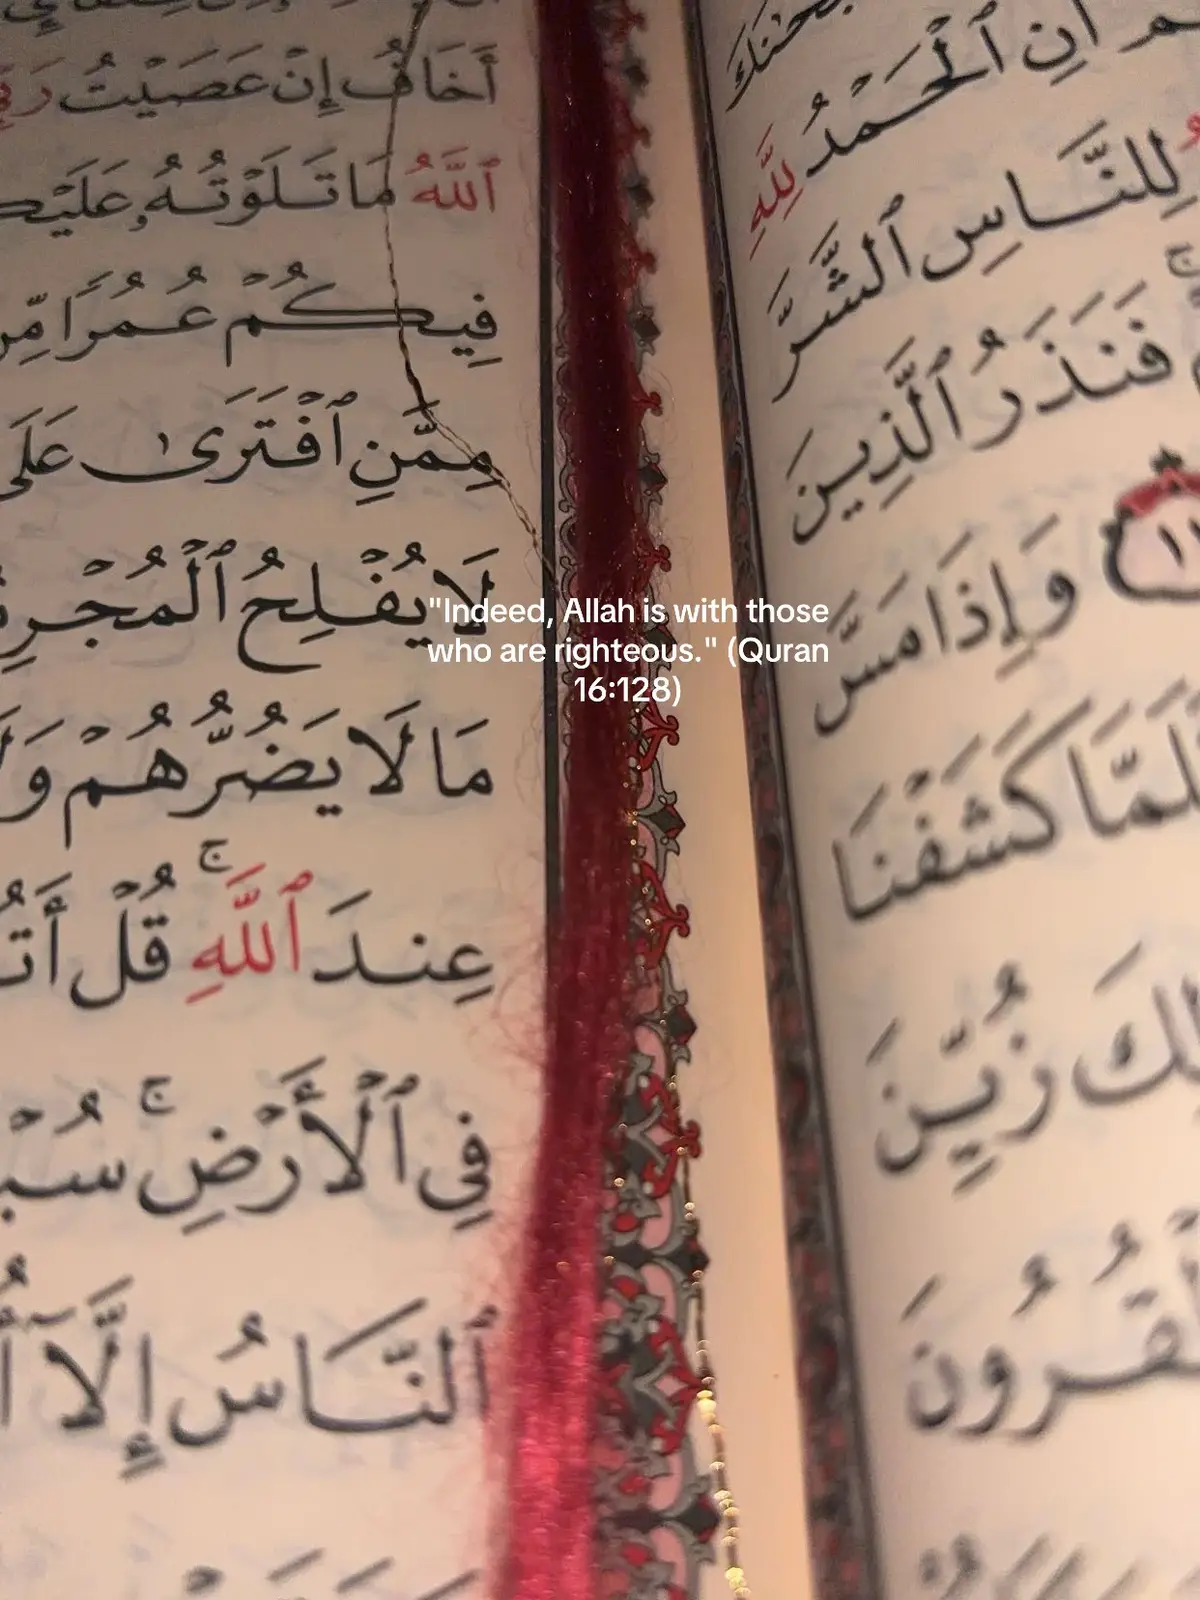 أَنِ ٱلْحَمْدُ لِلَّهِ
لِلنَّاسِ ٱلشَّرَّ
فَنَذَرُ ٱلَّذِينَ
وَإِذَا مَسَّ
كَشَفْنَا
زُيِّنَ
أَخَافُ إِنْ عَصَيْتُ
ٱللَّهُ مَا تَلَوْتُهُۥ
فِيكُمْ عُمُرًا مِّن
مِمَّنِ ٱفْتَرَىٰ عَلَى
لَا يُفْلِحُ
مَا لَا يَضُرُّهُمْ
عِندَ ٱللَّهِ ۚ قُلْ
فِي ٱلْأَرْضِ ۚ
ٱلنَّاسُ إِلَّآ
"Indeed, Allah is with those
who are righteous." (Quran
16:128)